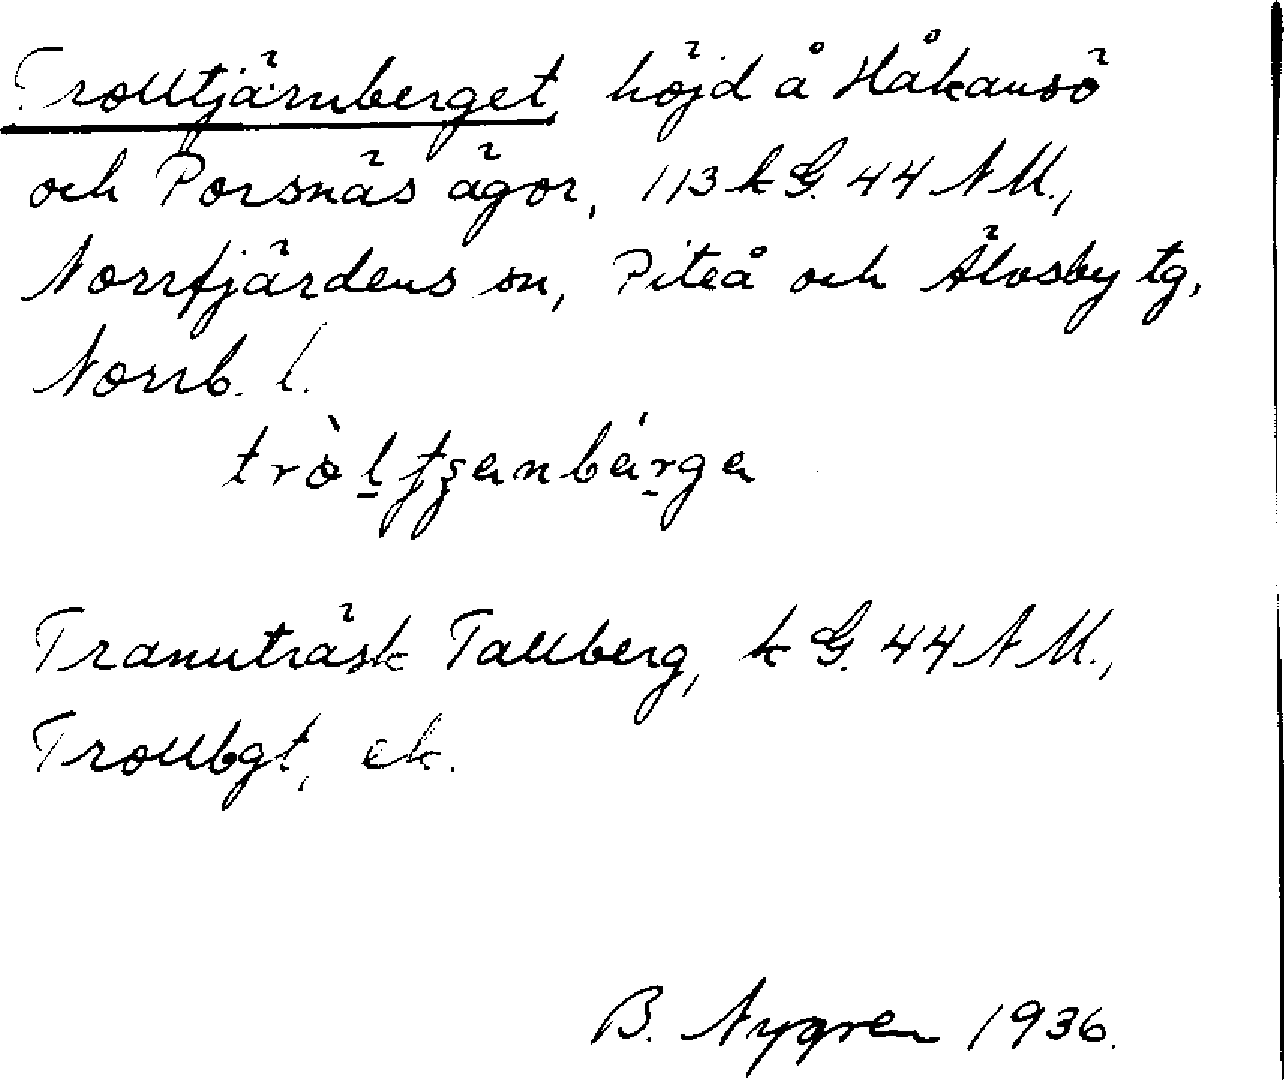 Trolltjärnberget, höjd å Håkansö
och Porsnäs ägor, 113 k G. 44 N M.,
Norrfjärdens sn, Piteå och Älvsby tg,
Norrb. l.

Tranuträsk Tallberg, k G. 44 N M.,
Trollbgt, ek.
B. Nygren 1936.